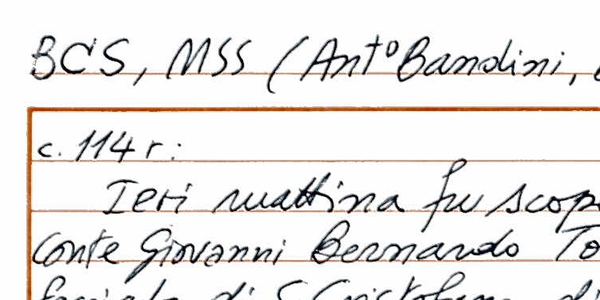 BCS, MSS (Ant° Bandini,
c. 114 r:
Ieri mattina fu scop
Conte Giovanni Bernardo To
di S. Cristofano di